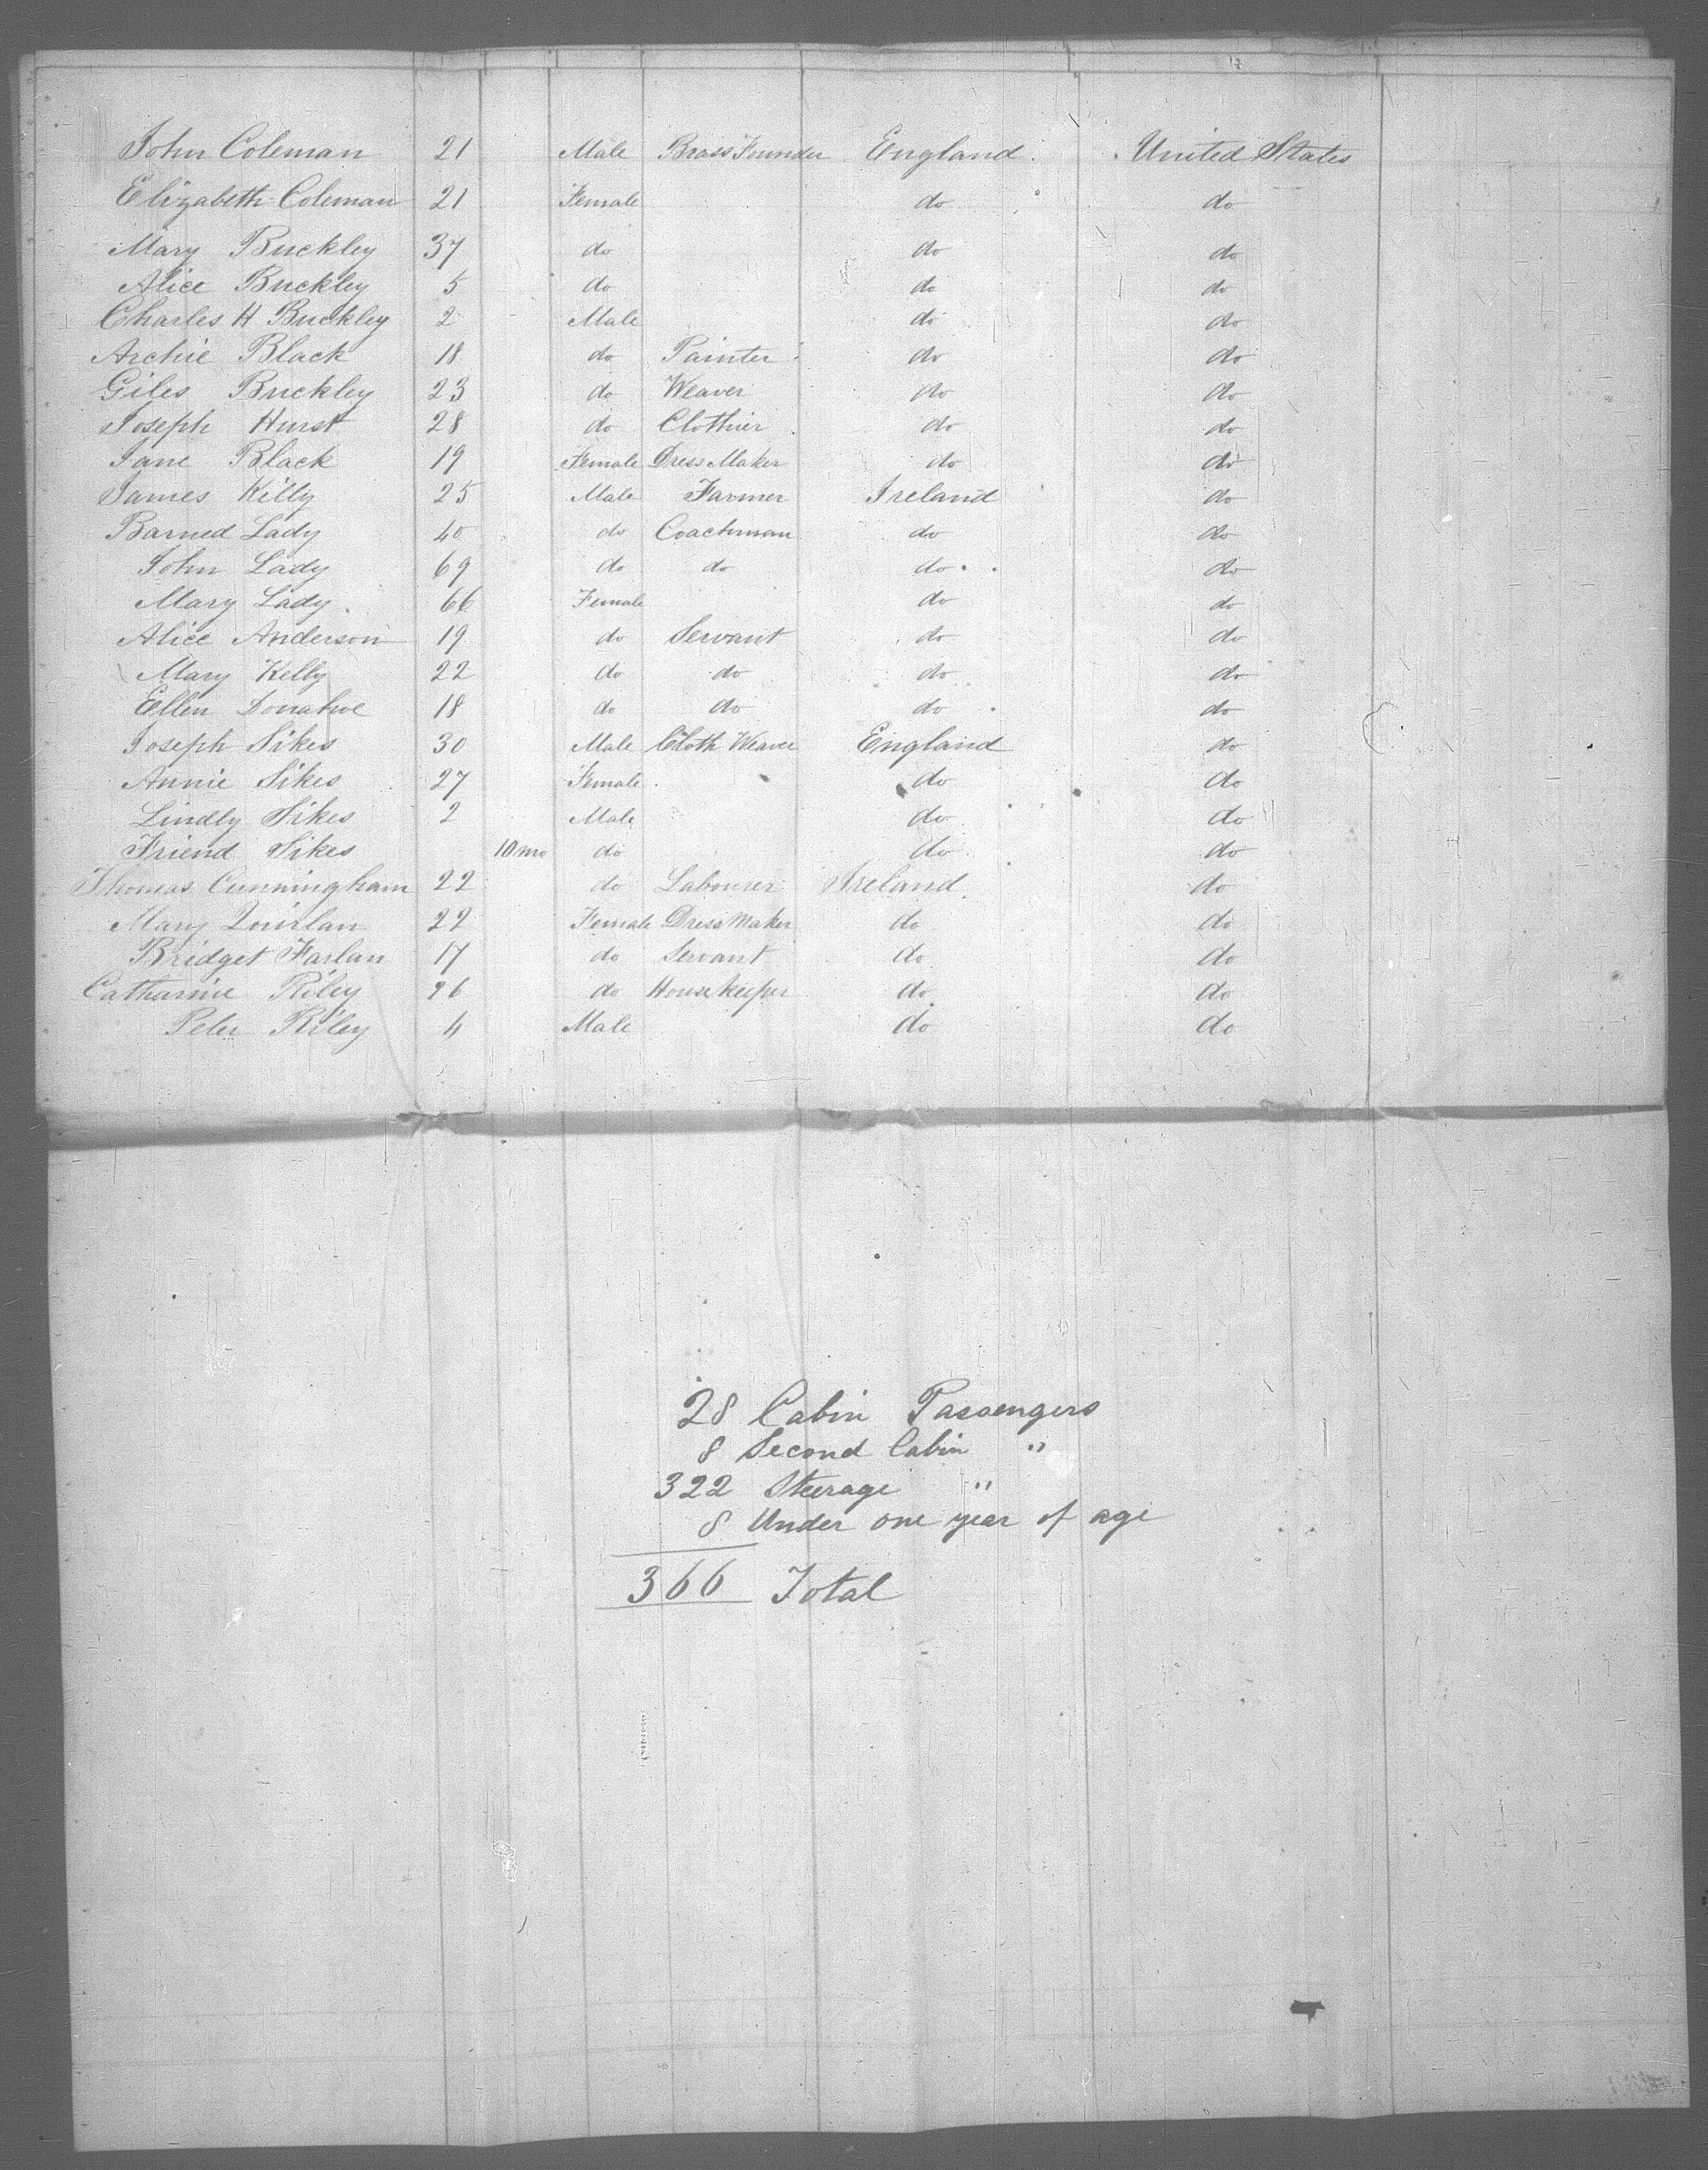 John Coleman 21 Male Brass Founder England United States
Elizabeth Coleman 21 Female do do
Mary Buckley 37 do do do
Alice Buckley 5 do do do
Charles H Buckley 2 Male do do
Archie Black 18 do Painter do do
Giles Buckley 23 do Weaver do do
Joseph Hurst 28 do Clothier do do
Jane Black 19 Female Dress Maker do do
James Kelly 25 Male Farmer Ireland do
Barned Lady 40 do Coachman do do
John Lady 69 do do do do
Mary Lady 66 Female do do
Alice Anderson 19 do Servant do do
Mary Kelly 22 do do do do
Ellen Donahoe 18 do do do do
Joseph Sikes 30 Male Cloth Weaver England do
Annie Sikes 27 Female do do
Lindly Sikes 2 Male do do
Friend Sikes 10 mo do do do
Thomas Cunningham 22 do Labourer Ireland do
Mary 22 Female Dress Maker do do
Bridget Farlan 17 do Servant do do
Catharine Riley 26 do House keeper do do
Peter Riley 4 Male do do
28 Cabin Passengers
8 Second Cabin "
322 Steerage "
8 Under one year of age
366 Total